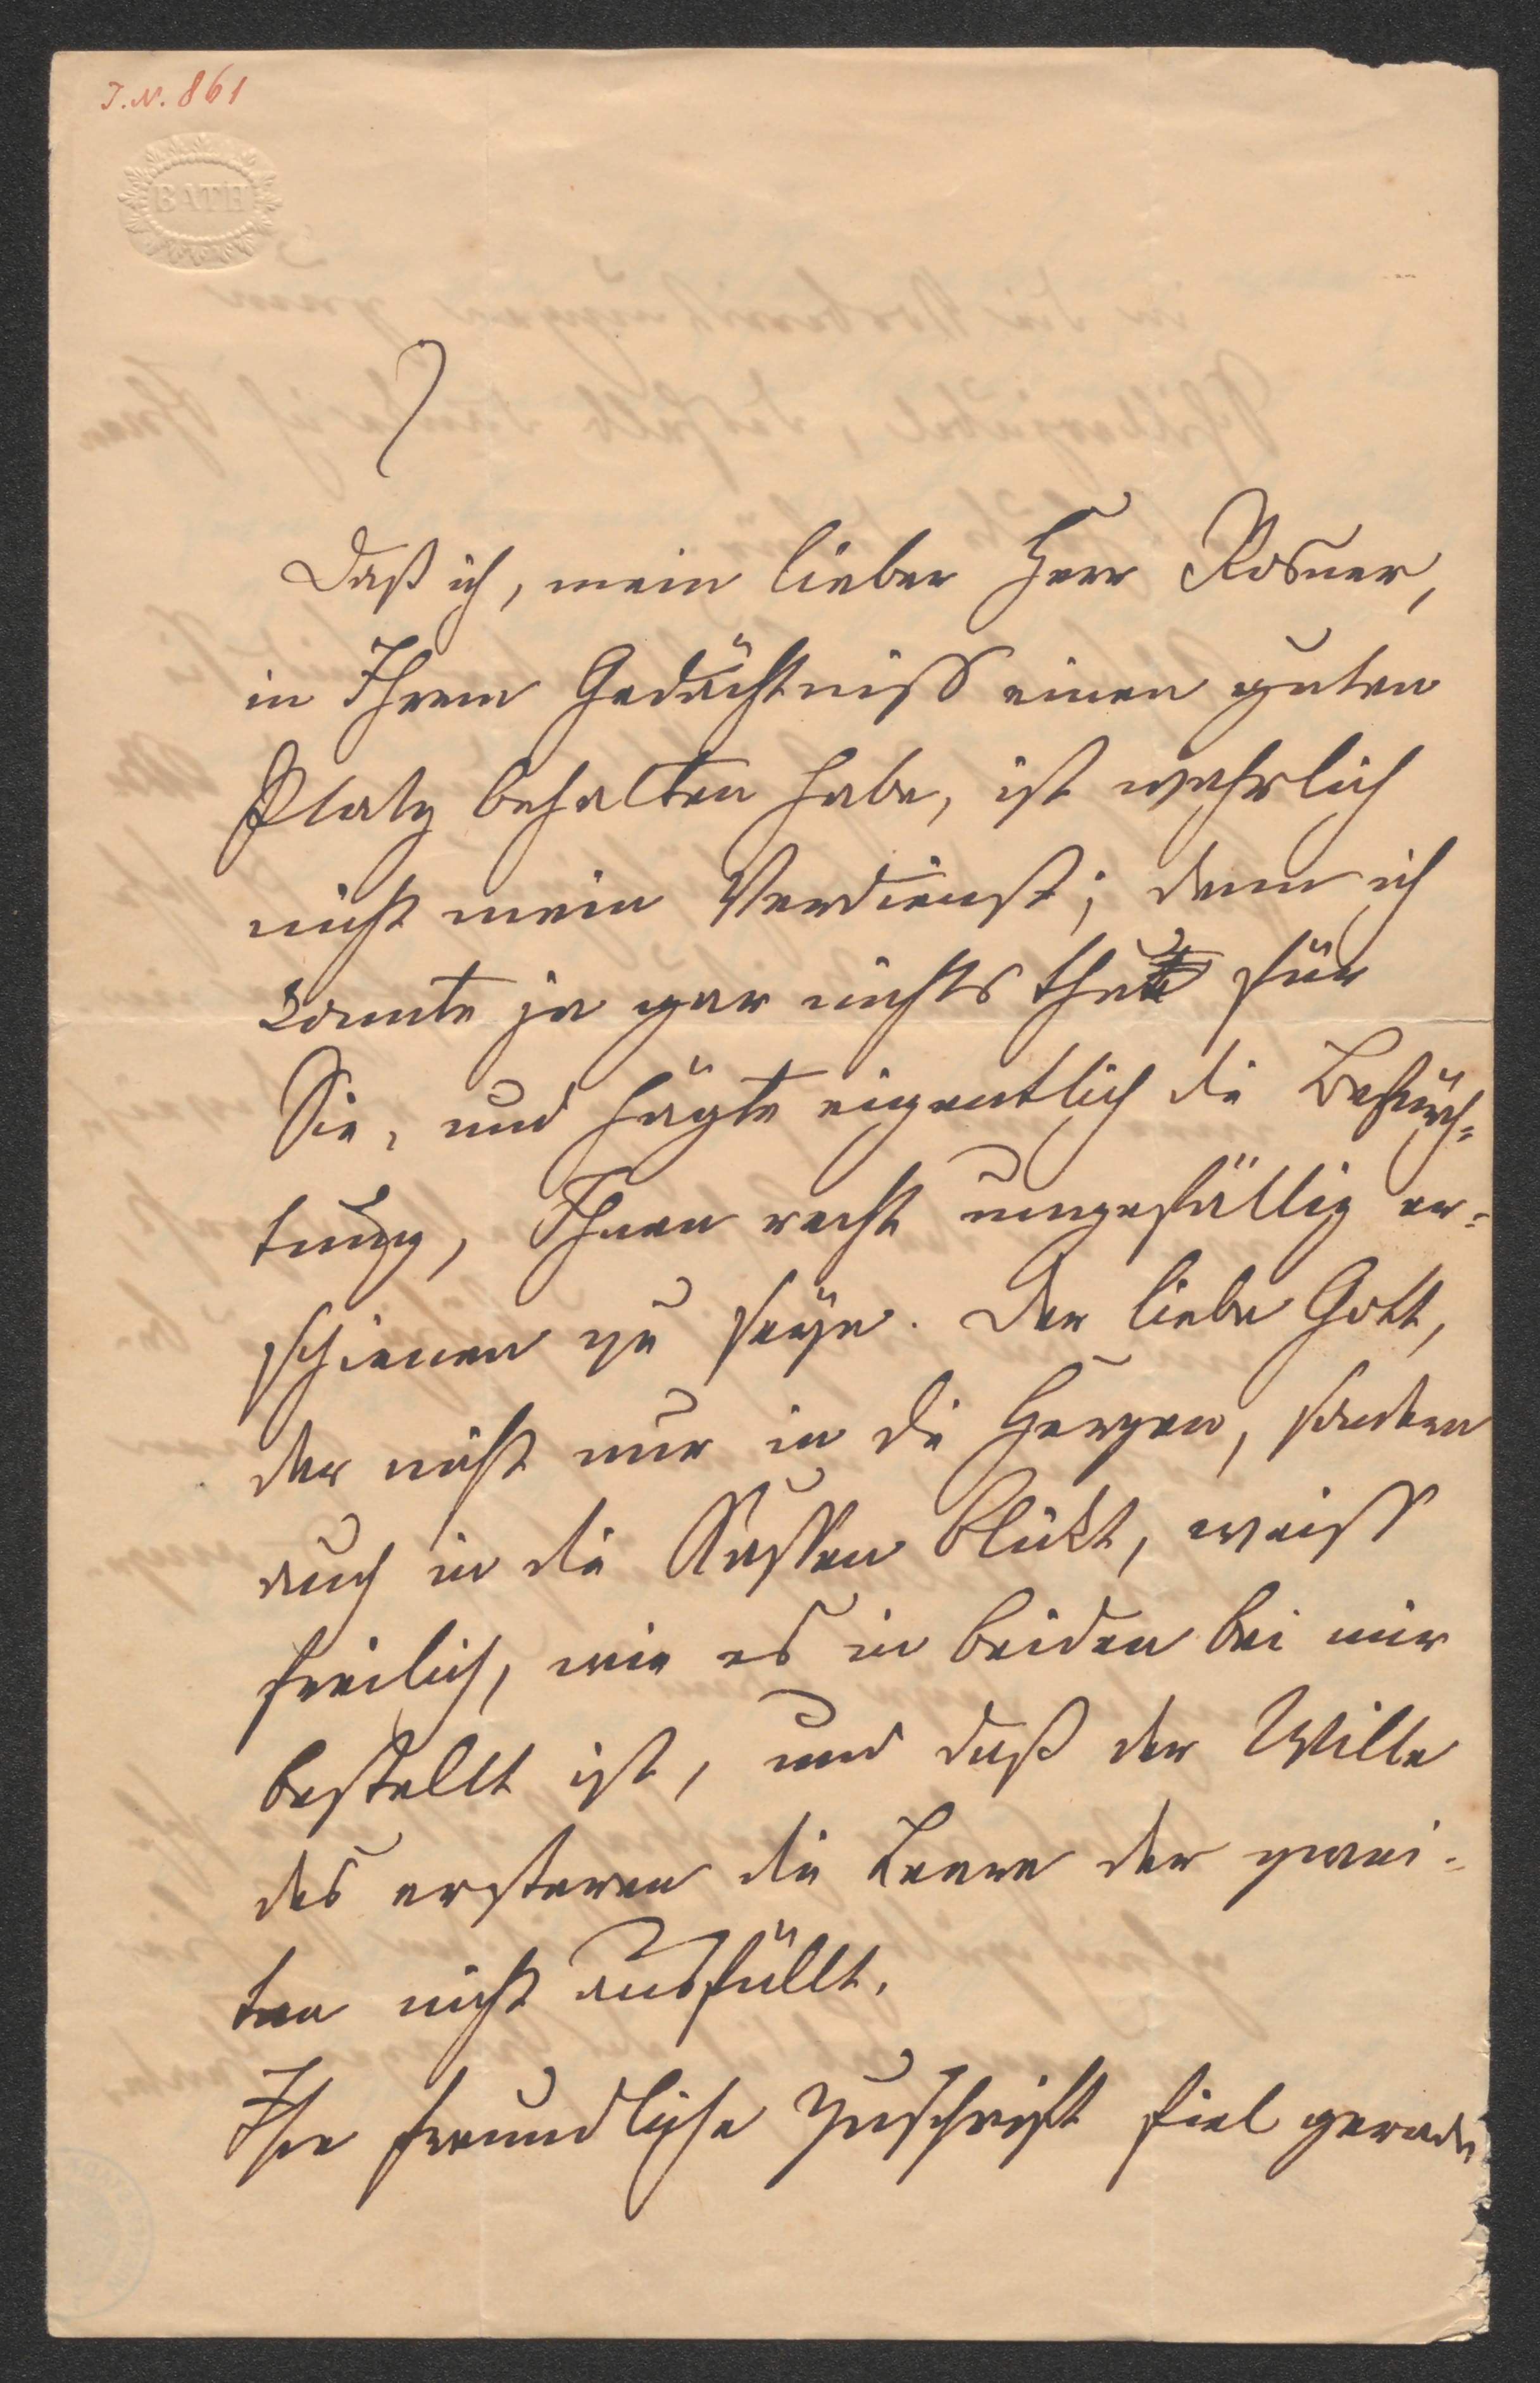 J. N. 861
BATH
Daß ich, mein lieber Herr Rosner,
in Ihrem Gedächtniss einen guten
Platz behalten habe, ist wahrlich
nicht mein Verdienst; denn ich
konnte ja gar nichts thun für
Sie, und hägte eigentlich die Befürch=
tung, Ihnen recht ungefällig er=
schienen zu seyn. Der liebe Gott,
der nicht nur in die Herzen, sondern
auch in die Kassen blickt, weiss
freilich, wie es in beiden bei mir
bestellt ist, und daß der Wille
des ersteren die Leere der zwei=
ten nicht ausfüllt.
Ihre freundliche Zuschrift fiel gerade